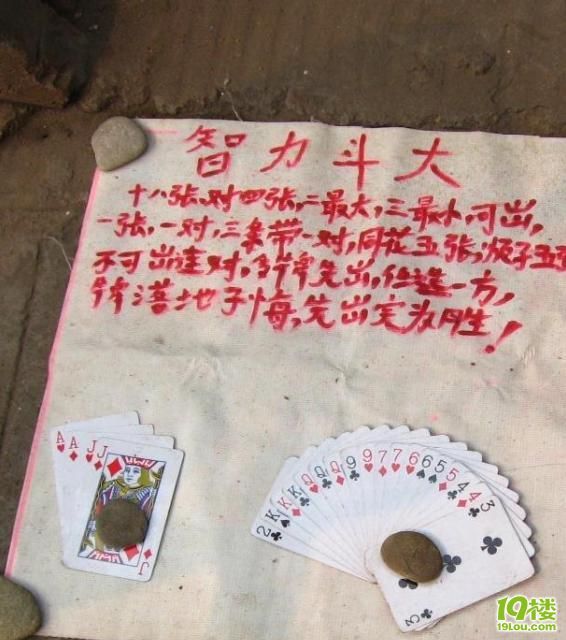 智力斗大
十八张,对四张,二最大,三最小,可出,
一张,一对,三条带一对,同花五张,顺子五
不可出连对,牌先出,任选一方,
牌落地子悔,先出完为胜!
A A J J
J
2 K K K Q Q Q 9 9 7 7 6 6 5 5 4 4 3
3
19楼
19Lou.com